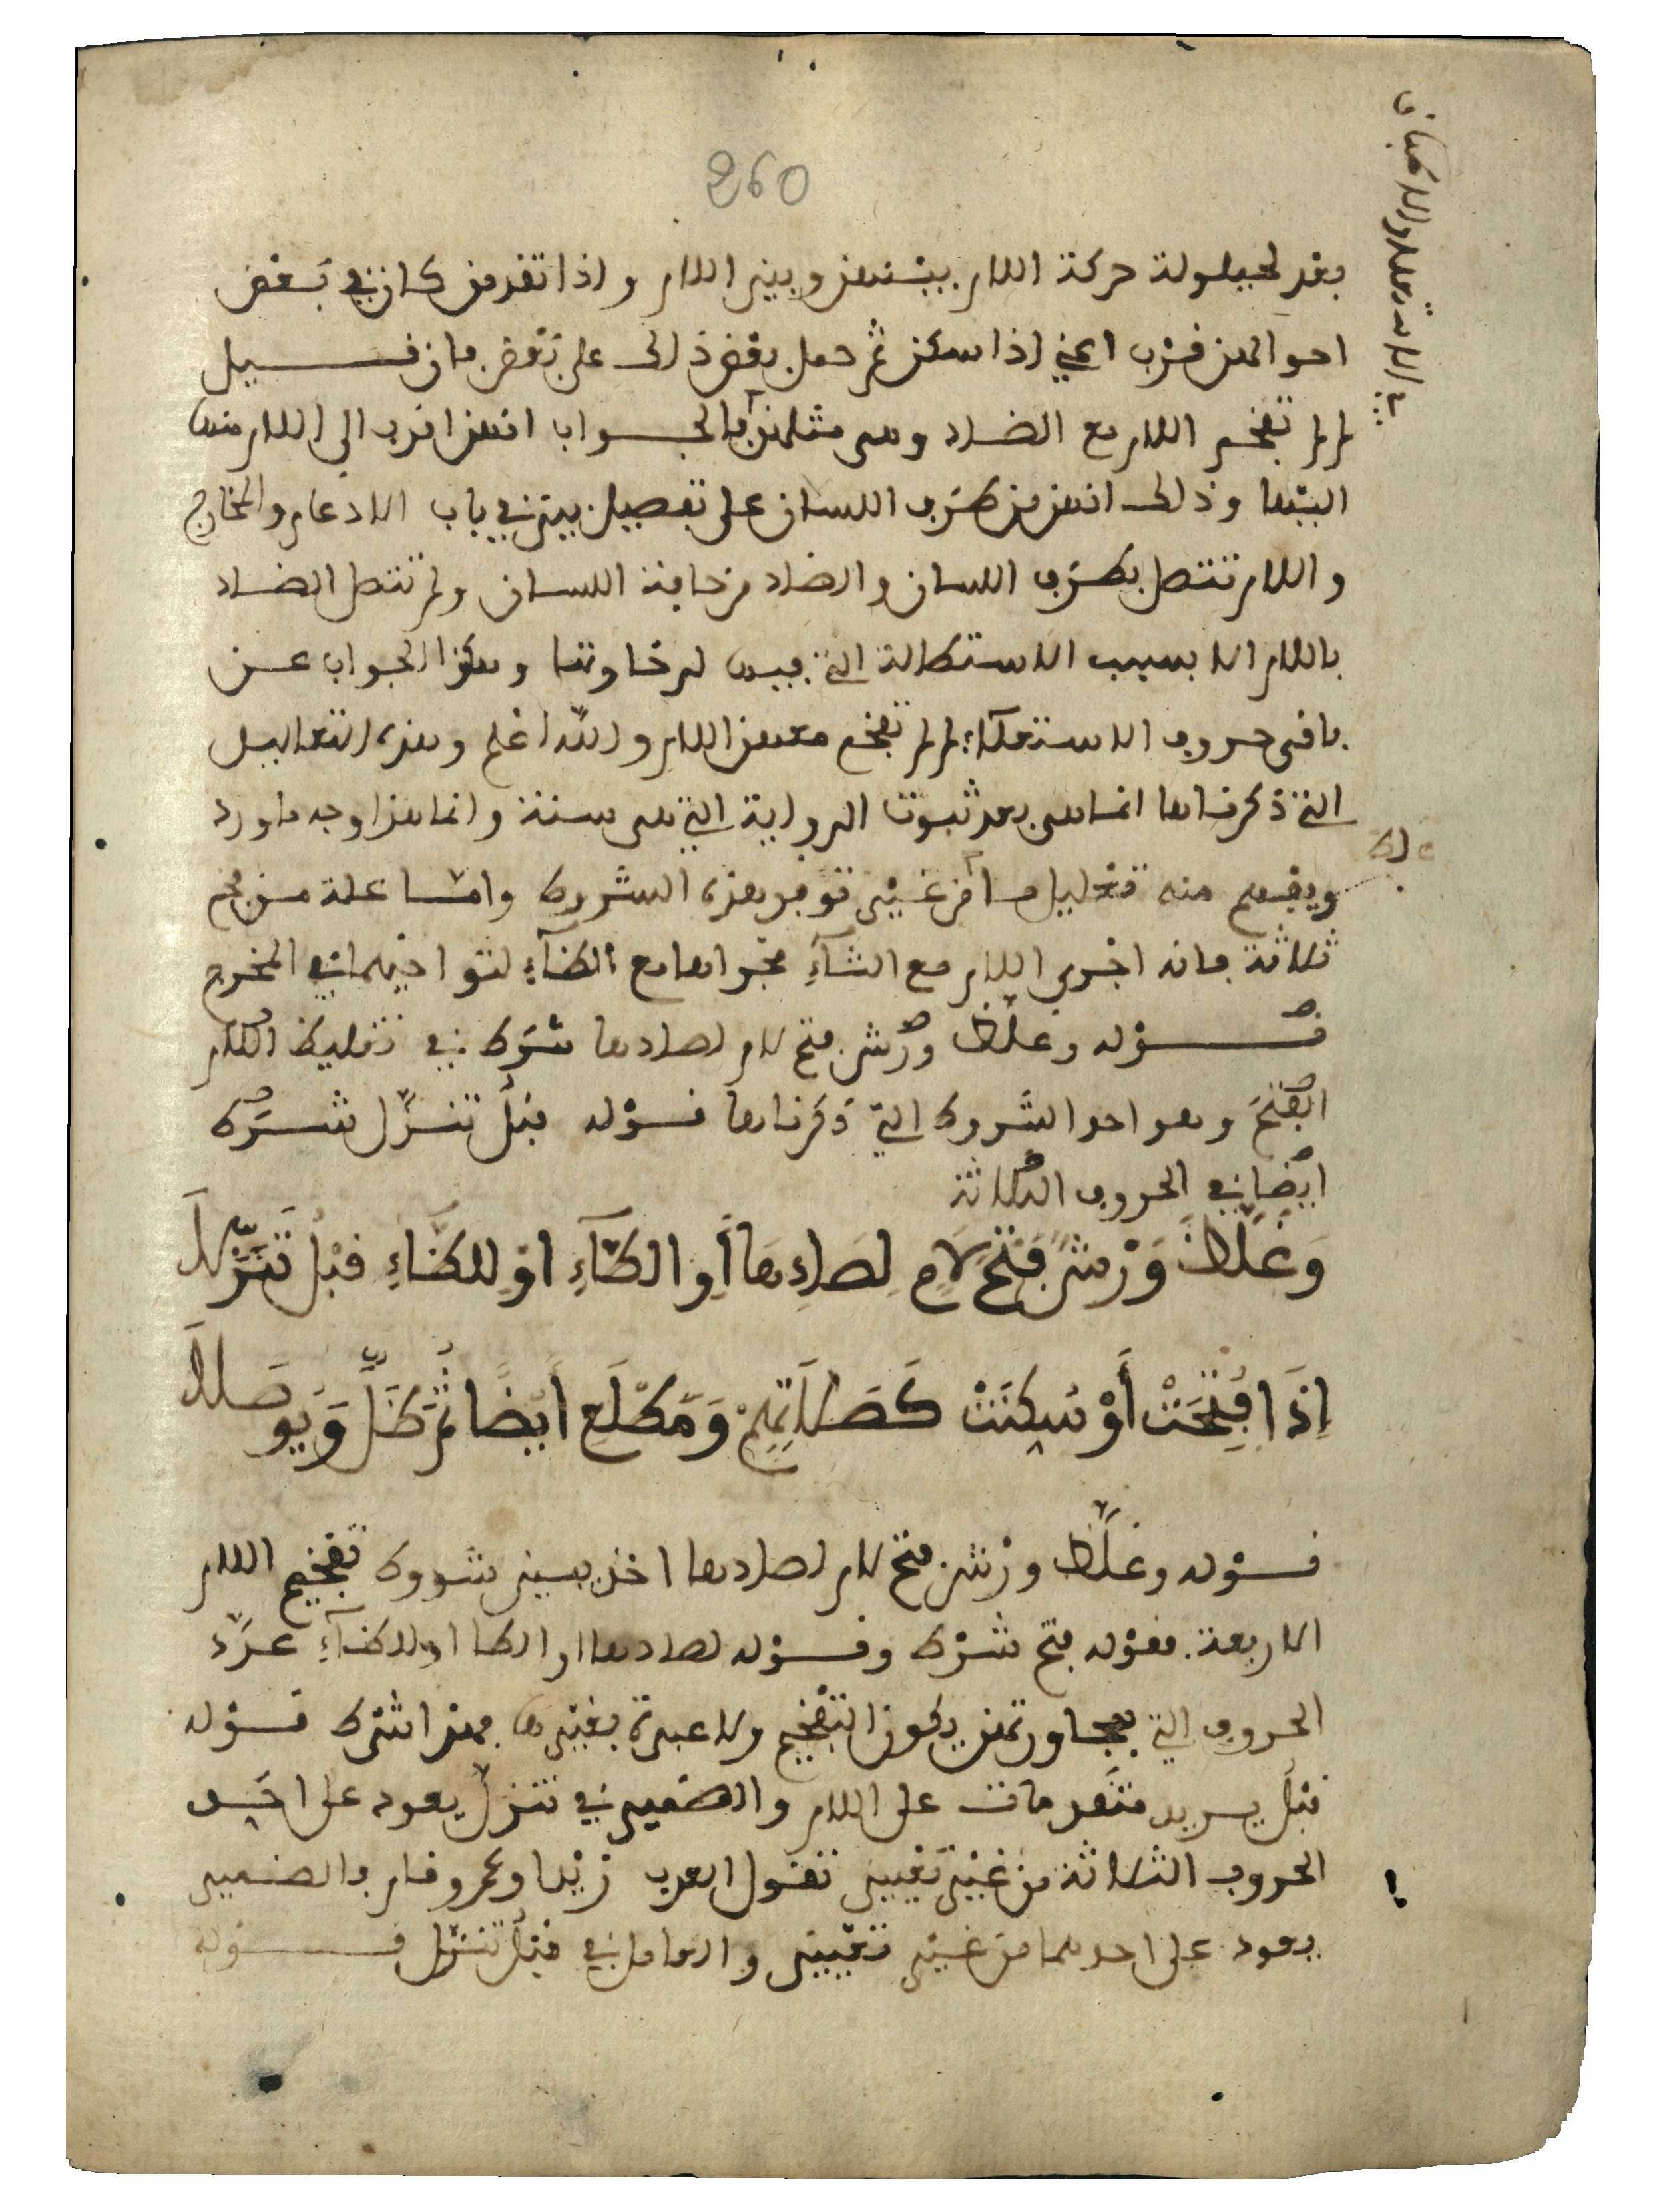 260
بعد لحيلولة حركة اللام بينهن وبين اللام واذا تقدمن كان في بعض
احوالهن قرب اعني اذا سكن ثم حمل بعض ذلك على بعض فان قيل
لم لم تفخم اللام مع الضاد وهي مثلهن فالجواب انهن اقرب الى اللام منها
اليها وذلك انهن من طرف اللسان على تفصيل بين في باب الادغام والمخارج
واللام تتصل بطرف اللسان والضاد من حافة اللسان ولم تتصل الضاد
باللام الا بسبب الاستطالة التي فيها لرخاوتها وهكذا الجواب عن
باقي حروف الاستعلاء لم لم تفخم معهن اللام والله اعلم وهذه التعاليل
التي ذكرناها انما هي بعد ثبوت الرواية التي هي سنة وانما هذا وجه ما ورد
ويفهم منه تعليل ما من غير توفر هذه الشروط واما علة من فخم
ثلاثة فانه اجرى اللام مع الثاء مجراها مع الظاء لتواخيهما في المخرج
قوله وغلظ ورش فتح لام لصادها شرط في تغليظ اللام
الفتح وهو احد الشروط التي ذكرناها قوله قبل تنزل شرط
ايضا في الحروف الثلاثة
وَغَلَّظَ وَرْشٌ فَتْحَ لَامٍ لِصَادِهَا أَوِ الطَّاءِ اوْ لِلظَّاءِ قَبْلُ تَنَزُّلَا
إِذَا فُتِحَتْ أَوْ سُكِنَتْ كَصَلَاتِهِمْ وَمَطْلَعِ أَيْضًا ثُمَّ ظَلَّ وَيُوصَلَا
قوله وغلظ ورش فتح لام لصادها اخذ يبين شروط تفخيم اللام
الاربعة فقوله فتح شرط وقوله لصادها او الطا او للظاء عدد
الحروف التي بمجاورتهن يكون التفخيم ولا عبرة بغيرها فهذا شرط قوله
قبل يريد متقدمات على اللام والضمير في تنزل يعود على احد
الحروف الثلاثة من غير تعيين تقول العرب زيد او عمرو قام فالضمير
يعود على احدهما من غير تعيين والعامل في قبل تنزل قوله